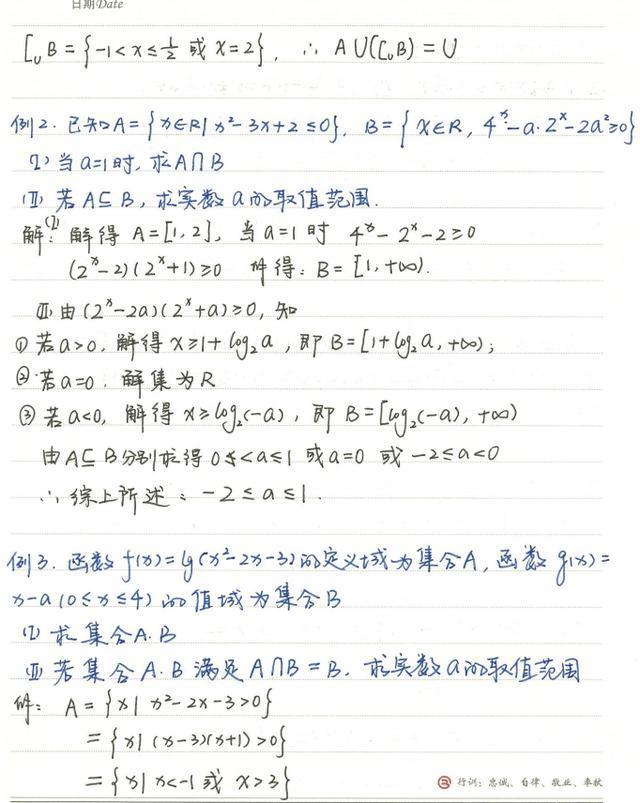 日期Date
∁ᵤB = {-1 < x ≤ 1/2 或 x = 2}, ∴ A∪(∁ᵤB) = U
例2. 已知A = {x∈R | x² - 3x + 2 ≤ 0}, B = {x∈R, 4ˣ - a·2ˣ - 2a² ≥ 0}
(I) 当a=1时, 求A∩B
(II) 若A⊆B, 求实数a的取值范围.
解: (I) 解得 A = [1, 2], 当a=1时 4ˣ - 2ˣ - 2 ≥ 0
(2ˣ - 2)(2ˣ + 1) ≥ 0 解得: B = [1, +∞).
(II) 由(2ˣ - 2a)(2ˣ + a) ≥ 0, 知
① 若a>0, 解得 x ≥ 1 + log₂a, 即B = [1 + log₂a, +∞);
② 若a=0. 解集为R
③ 若a<0, 解得 x ≥ log₂(-a), 即 B = [log₂(-a), +∞)
由A⊆B分别求得 0 < a ≤ 1 或a=0 或 -2 ≤ a < 0
∴ 综上所述: -2 ≤ a ≤ 1.
例3. 函数 f(x) = lg(x² - 2x - 3)的定义域为集合A, 函数 g(x) =
x - a (0 ≤ x ≤ 4) 的值域为集合B
(I) 求集合A.B
(II) 若集合A.B 满足 A∩B = B. 求实数a的取值范围
解: A = {x | x² - 2x - 3 > 0}
= {x | (x-3)(x+1) > 0}
= {x | x < -1 或 x > 3}
行训: 忠诚、自律、敬业、奉献